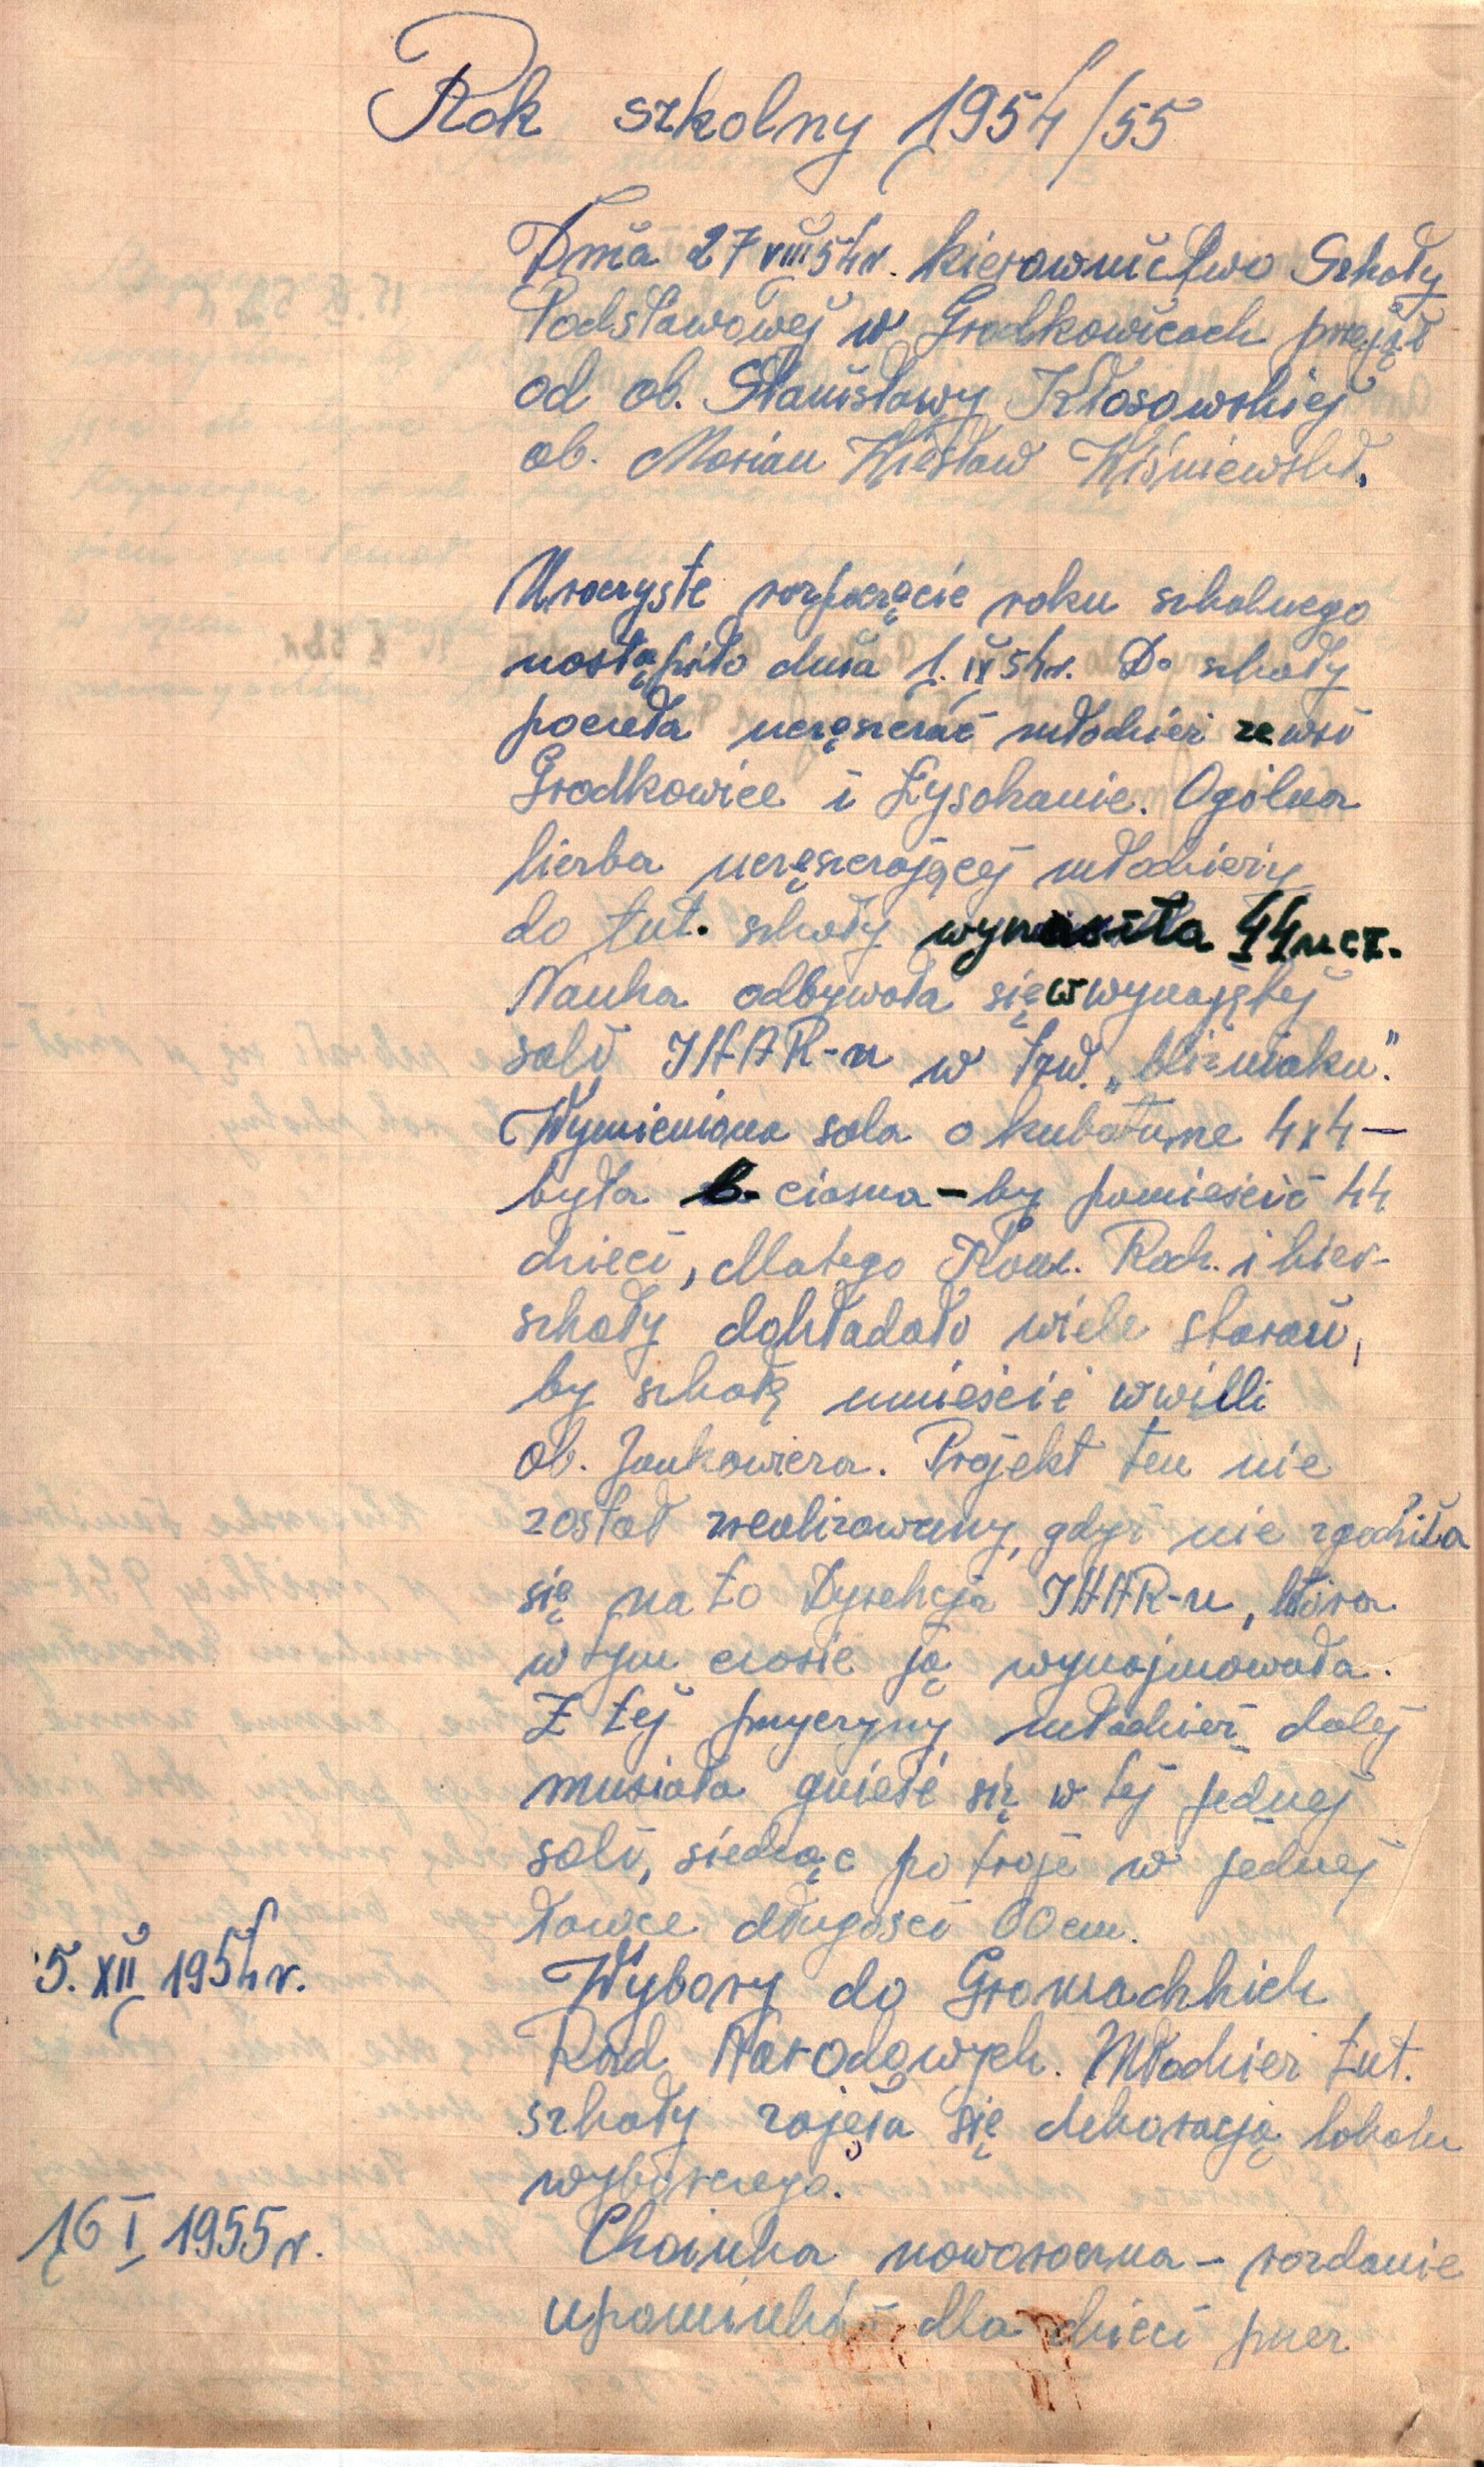 Rok szkolny 1954/55
Dnia 27 VIII 54 r. kierownictwo Szkoły
Podstawowej w Grodkowicach przejął
od ob. Stanisławy Kłosowskiej
ob. Marian Wiesław Wiśniewski.
Uroczyste rozpoczęcie roku szkolnego
nastąpiło dnia 1. IX 54 r. Do szkoły
poczęła uczęszczać młodzież ze wsi
Grodkowice i Łysokanie. Ogólna
liczba uczęszczającej młodzieży
do tut. szkoły wynosiła 44 ucz.
Nauka odbywała się w wynajętej
sali IHAR-u w tzw. „bliźniaku".
Wymieniona sala o kubaturze 4x4 –
była b. ciasna – by pomieścić 44
dzieci, dlatego Kom. Rodz. i kier.
szkoły dokładało wiele starań,
by szkołę umieścić w willi
ob. Jankowicza. Projekt ten nie
został zrealizowany, gdyż nie zgodziła
się na to Dyrekcja IHAR-u, która
w tym czasie ją wynajmowała.
Z tej przyczyny młodzież dalej
musiała gnieść się w tej jednej
sali, siedząc po troje w jednej
ławce długości 60 cm.
5. XII 1954 r.
Wybory do Gromadzkich
Rad Narodowych. Młodzież tut.
szkoły zajęła się dekoracją lokalu
wyborczego.
16 I 1955 r.
Choinka noworoczna – rozdanie
upominków dla dzieci przez